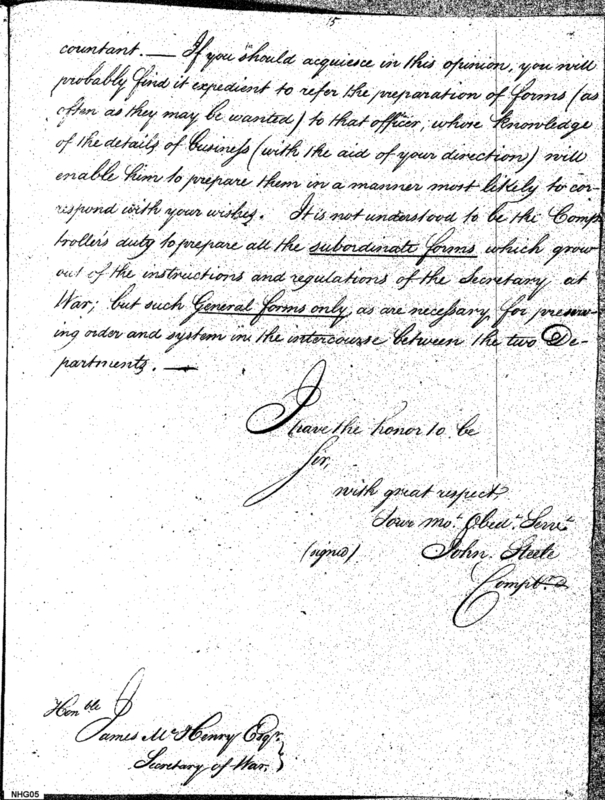 15
countant. — If you should acquiesce in this opinion, you will
probably find it expedient to refer the preparation of forms (as
often as they may be wanted) to that officer, whose knowledge
of the details of business (with the aid of your direction) will
enable him to prepare them in a manner most likely to cor-
respond with your wishes. It is not understood to be the Comp
troller's duty to prepare all the subordinate forms which grow
out of the instructions and regulations of the Secretary at
War; but such General forms only, as are necessary for preserv-
ing order and system in the intercourse between the two De-
partments. —
I have the honor to be
Sir,
with great respect,
Your mo. Obed. Servt
(signed) John Steele
Compt.
Honble
James McHenry Esqr.
Secretary of War.
NHG05